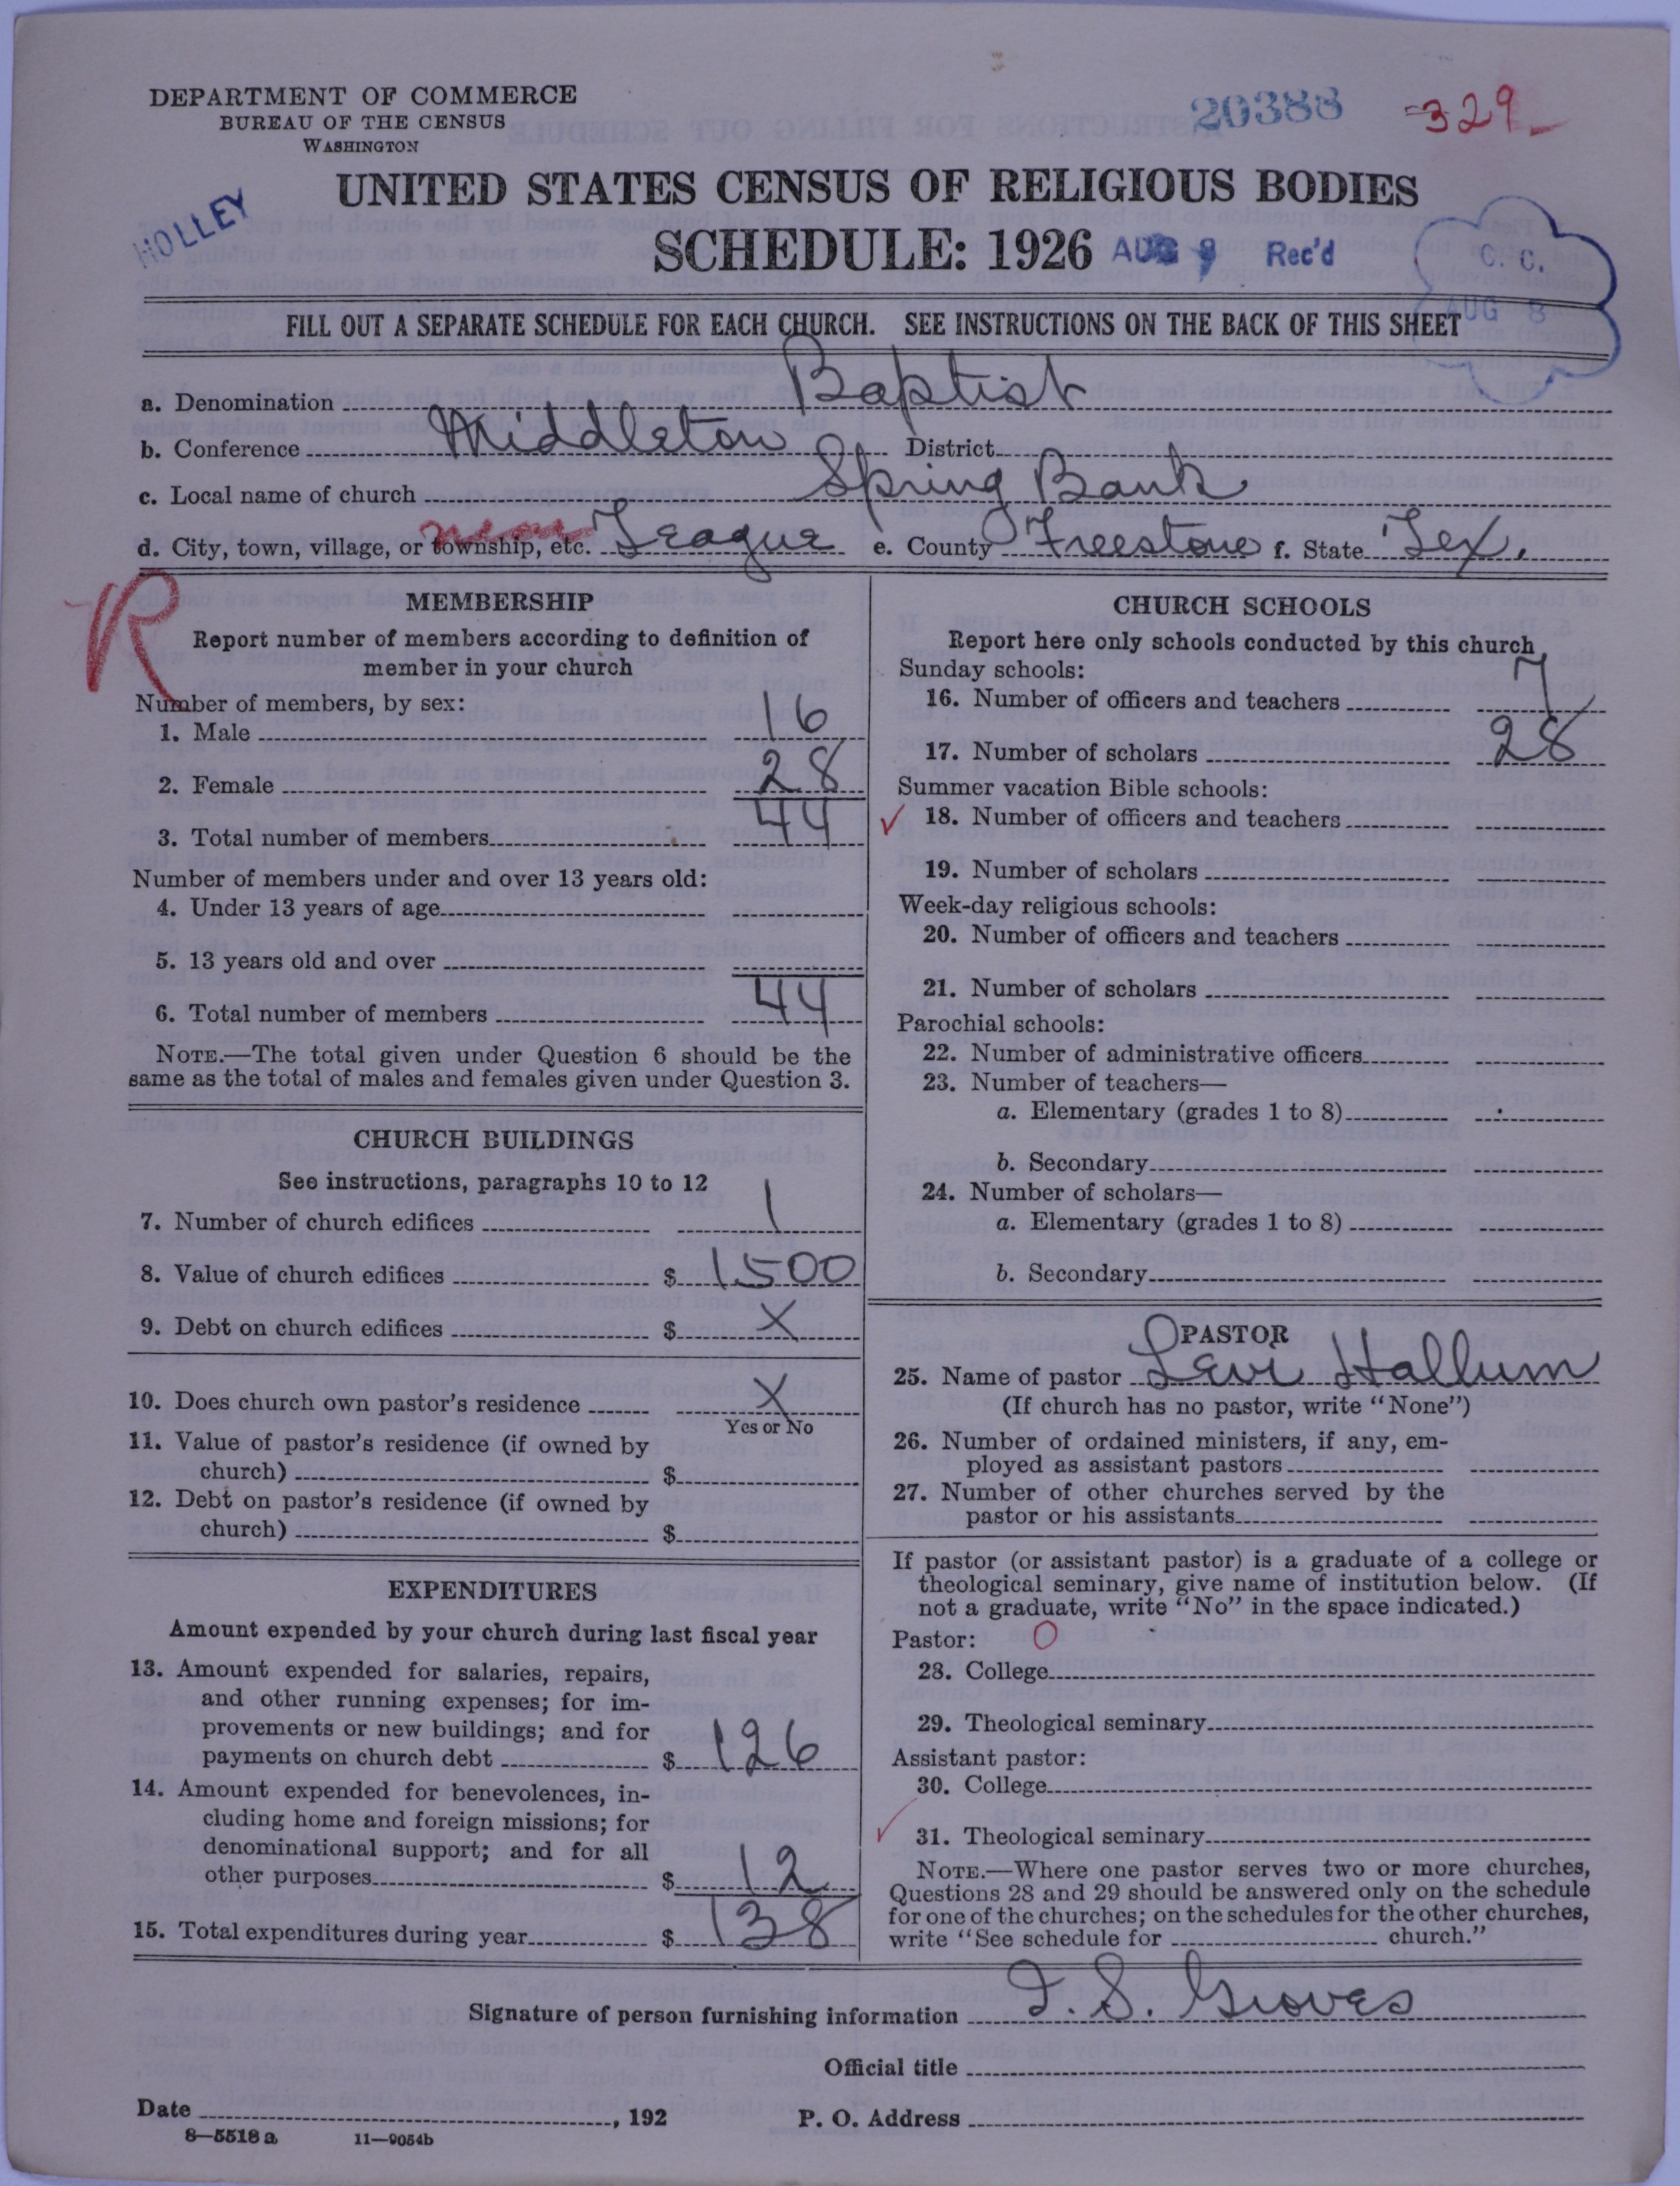 DEPARTMENT OF COMMERCE
BUREAU OF THE CENSUS
WASHINGTON
20388
-329
HOLLEY
UNITED STATES CENSUS OF RELIGIOUS BODIES
SCHEDULE: 1926
AUG 9 Rec'd
C. C.
AUG 8
FILL OUT A SEPARATE SCHEDULE FOR EACH CHURCH. SEE INSTRUCTIONS ON THE BACK OF THIS SHEET
a. Denomination Baptist
b. Conference Middleton District
c. Local name of church Spring Bank
near
d. City, town, village, or township, etc. Teague e. County Freestone f. State Tex.
R
MEMBERSHIP
Report number of members according to definition of
member in your church
Number of members, by sex:
1. Male 16
2. Female 28
3. Total number of members 44
Number of members under and over 13 years old:
4. Under 13 years of age
5. 13 years old and over
6. Total number of members 44
NOTE.—The total given under Question 6 should be the
same as the total of males and females given under Question 3.
CHURCH BUILDINGS
See instructions, paragraphs 10 to 12
7. Number of church edifices 1
8. Value of church edifices $ 1500
9. Debt on church edifices $ X
10. Does church own pastor's residence X
Yes or No
11. Value of pastor's residence (if owned by
church) $
12. Debt on pastor's residence (if owned by
church) $
EXPENDITURES
Amount expended by your church during last fiscal year
13. Amount expended for salaries, repairs,
and other running expenses; for im-
provements or new buildings; and for
payments on church debt $ 126
14. Amount expended for benevolences, in-
cluding home and foreign missions; for
denominational support; and for all
other purposes $ 12
15. Total expenditures during year $ 138
CHURCH SCHOOLS
Report here only schools conducted by this church
Sunday schools:
16. Number of officers and teachers 7
17. Number of scholars 28
Summer vacation Bible schools:
✓ 18. Number of officers and teachers
19. Number of scholars
Week-day religious schools:
20. Number of officers and teachers
21. Number of scholars
Parochial schools:
22. Number of administrative officers
23. Number of teachers—
a. Elementary (grades 1 to 8)
b. Secondary
24. Number of scholars—
a. Elementary (grades 1 to 8)
b. Secondary
PASTOR
25. Name of pastor Levi Hallum
(If church has no pastor, write "None")
26. Number of ordained ministers, if any, em-
ployed as assistant pastors
27. Number of other churches served by the
pastor or his assistants
If pastor (or assistant pastor) is a graduate of a college or
theological seminary, give name of institution below. (If
not a graduate, write "No" in the space indicated.)
Pastor: O
28. College
29. Theological seminary
Assistant pastor:
30. College
✓ 31. Theological seminary
NOTE.—Where one pastor serves two or more churches,
Questions 28 and 29 should be answered only on the schedule
for one of the churches; on the schedules for the other churches,
write "See schedule for church."
Signature of person furnishing information I. S. Groves
Official title
Date , 192 P. O. Address
8—5518 a 11—9054b